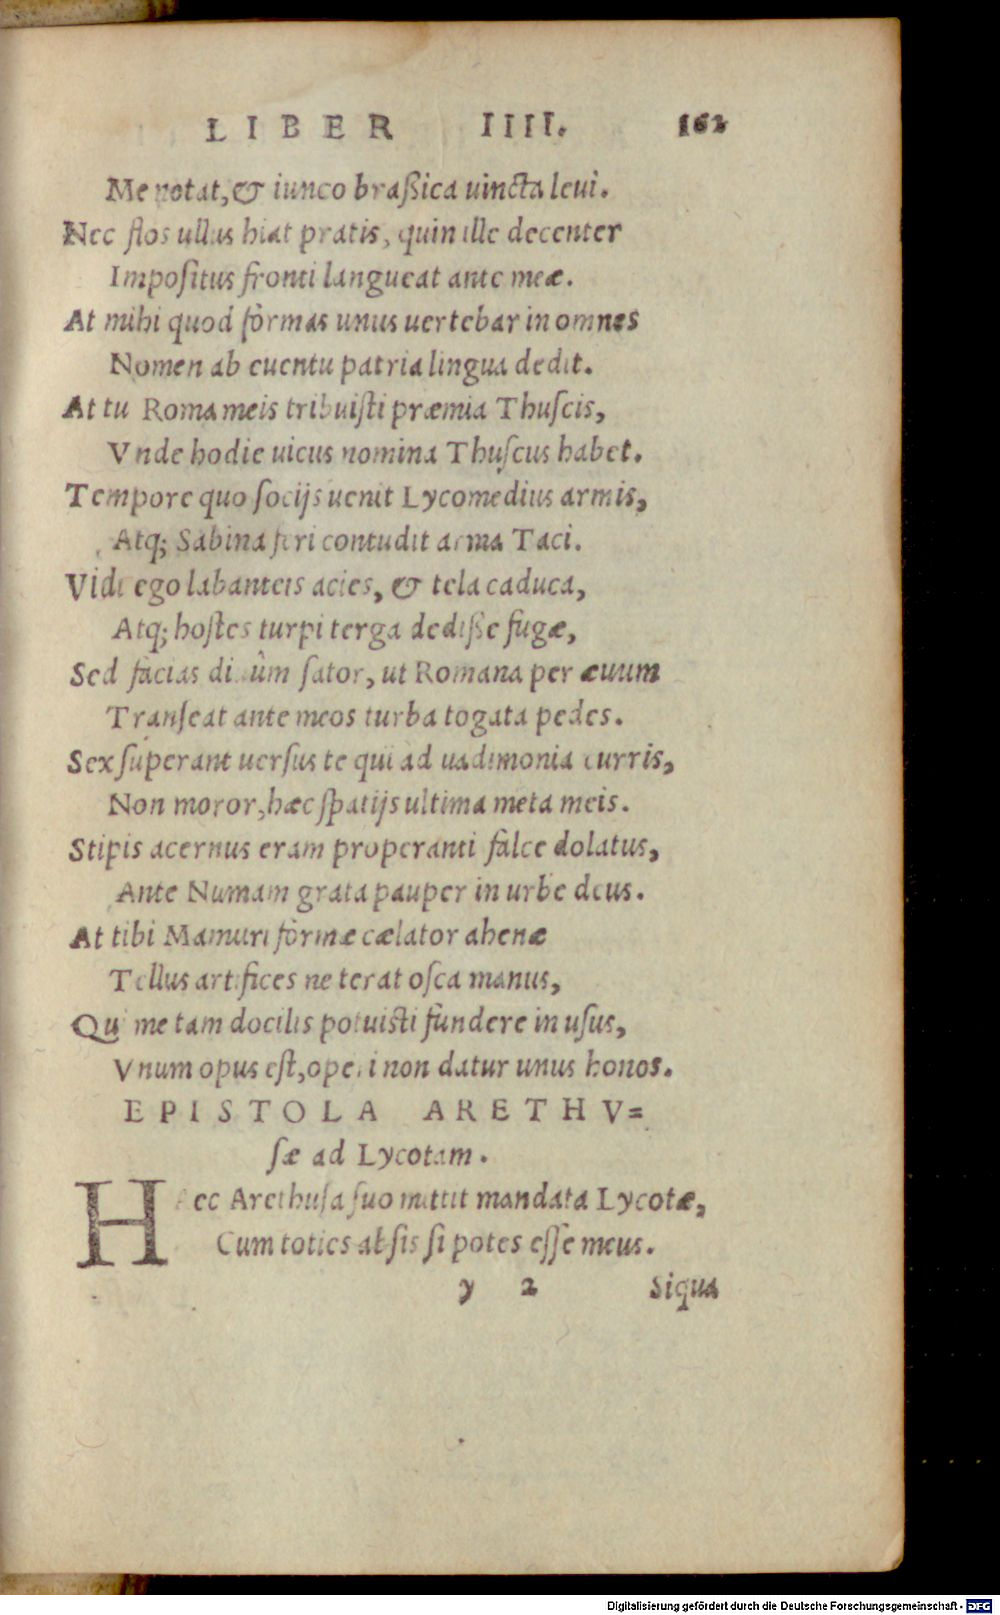 LIBER IIII. 162
Me notat, & iunco braßica uincta leui.
Nec flos ullus hiat pratis, quin ille decenter
Impoſitus fronti langueat ante meæ.
At mihi quod formas unus uertebar in omnes
Nomen ab euentu patria lingua dedit.
At tu Roma meis tribuiſti præmia Thuſcis,
Vnde hodie uicus nomina Thuſcus habet.
Tempore quo ſocijs uenit Lycomedius armis,
Atq; Sabina feri contudit arma Taci.
Vidi ego labanteis acies, & tela caduca,
Atq; hoſtes turpi terga dediße fugæ,
Sed facias diuûm ſator, ut Romana per æuum
Tranſeat ante meos turba togata pedes.
Sex ſuperant uerſus te qui ad uadimonia curris,
Non moror, hæc ſpatijs ultima meta meis.
Stipis acernus eram properanti falce dolatus,
Ante Numam grata pauper in urbe deus.
At tibi Mamuri formæ cælator ahenæ
Tellus artifices ne terat oſca manus,
Qui me tam docilis potuiſti fundere in uſus,
Vnum opus eſt, operi non datur unus honos.
EPISTOLA ARETHV=
ſæ ad Lycotam.
HAec Arethuſa ſuo mittit mandata Lycotæ,
Cum toties abſis ſi potes eſſe meus.
y 2 Siqua
Digitalisierung gefördert durch die Deutsche Forschungsgemeinschaft - DFG